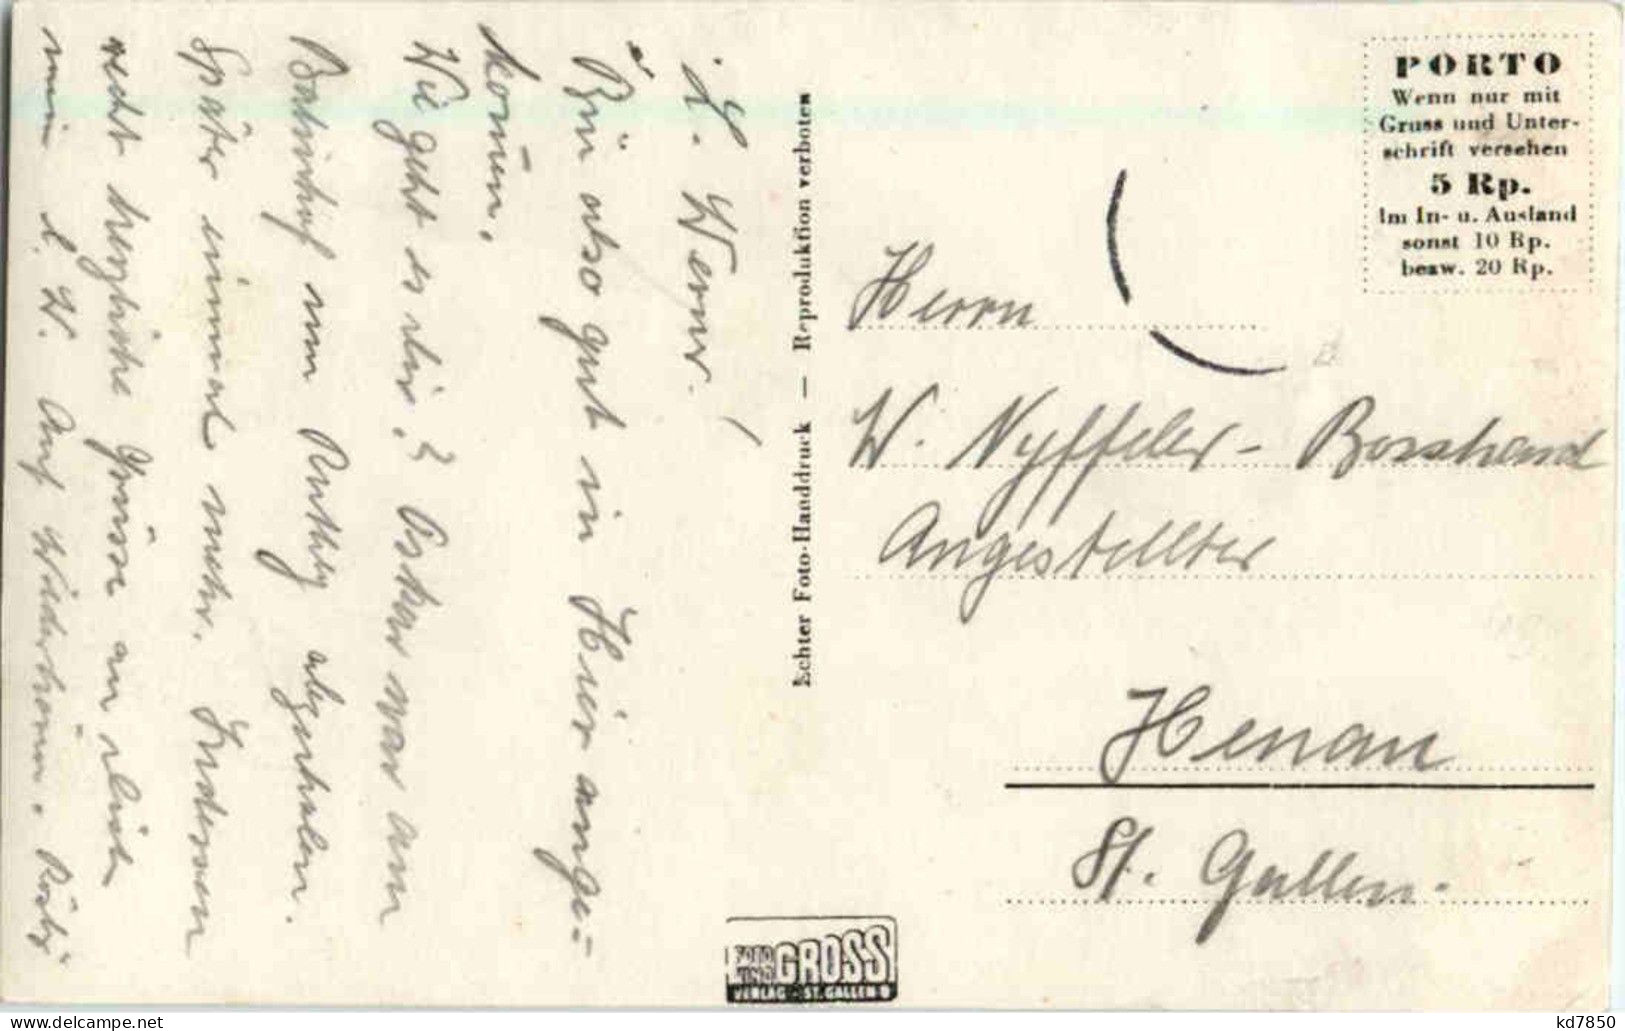 L. Werner!
Bin also gut in Hier ange-
kom̅en.
Wie geht es dir? Oskar war am
Bahnhof um Ruthly abzuholen.
Später einmal mehr. Indessen
recht herzliche Grüsse an dich
mein l. W. Auf Wiederhören. Rösly
Echter Foto-Handdruck — Reproduktion verboten
PORTO
Wenn nur mit
Gruss und Unter-
schrift versehen
5 Rp.
Im In- u. Ausland
sonst 10 Rp.
bezw. 20 Rp.
Herrn
W. Nyffeler-Bosshard
Angestellter
Henau
St. Gallen.
FOTO
UND GROSS
VERLAG · ST. GALLEN
kd7850